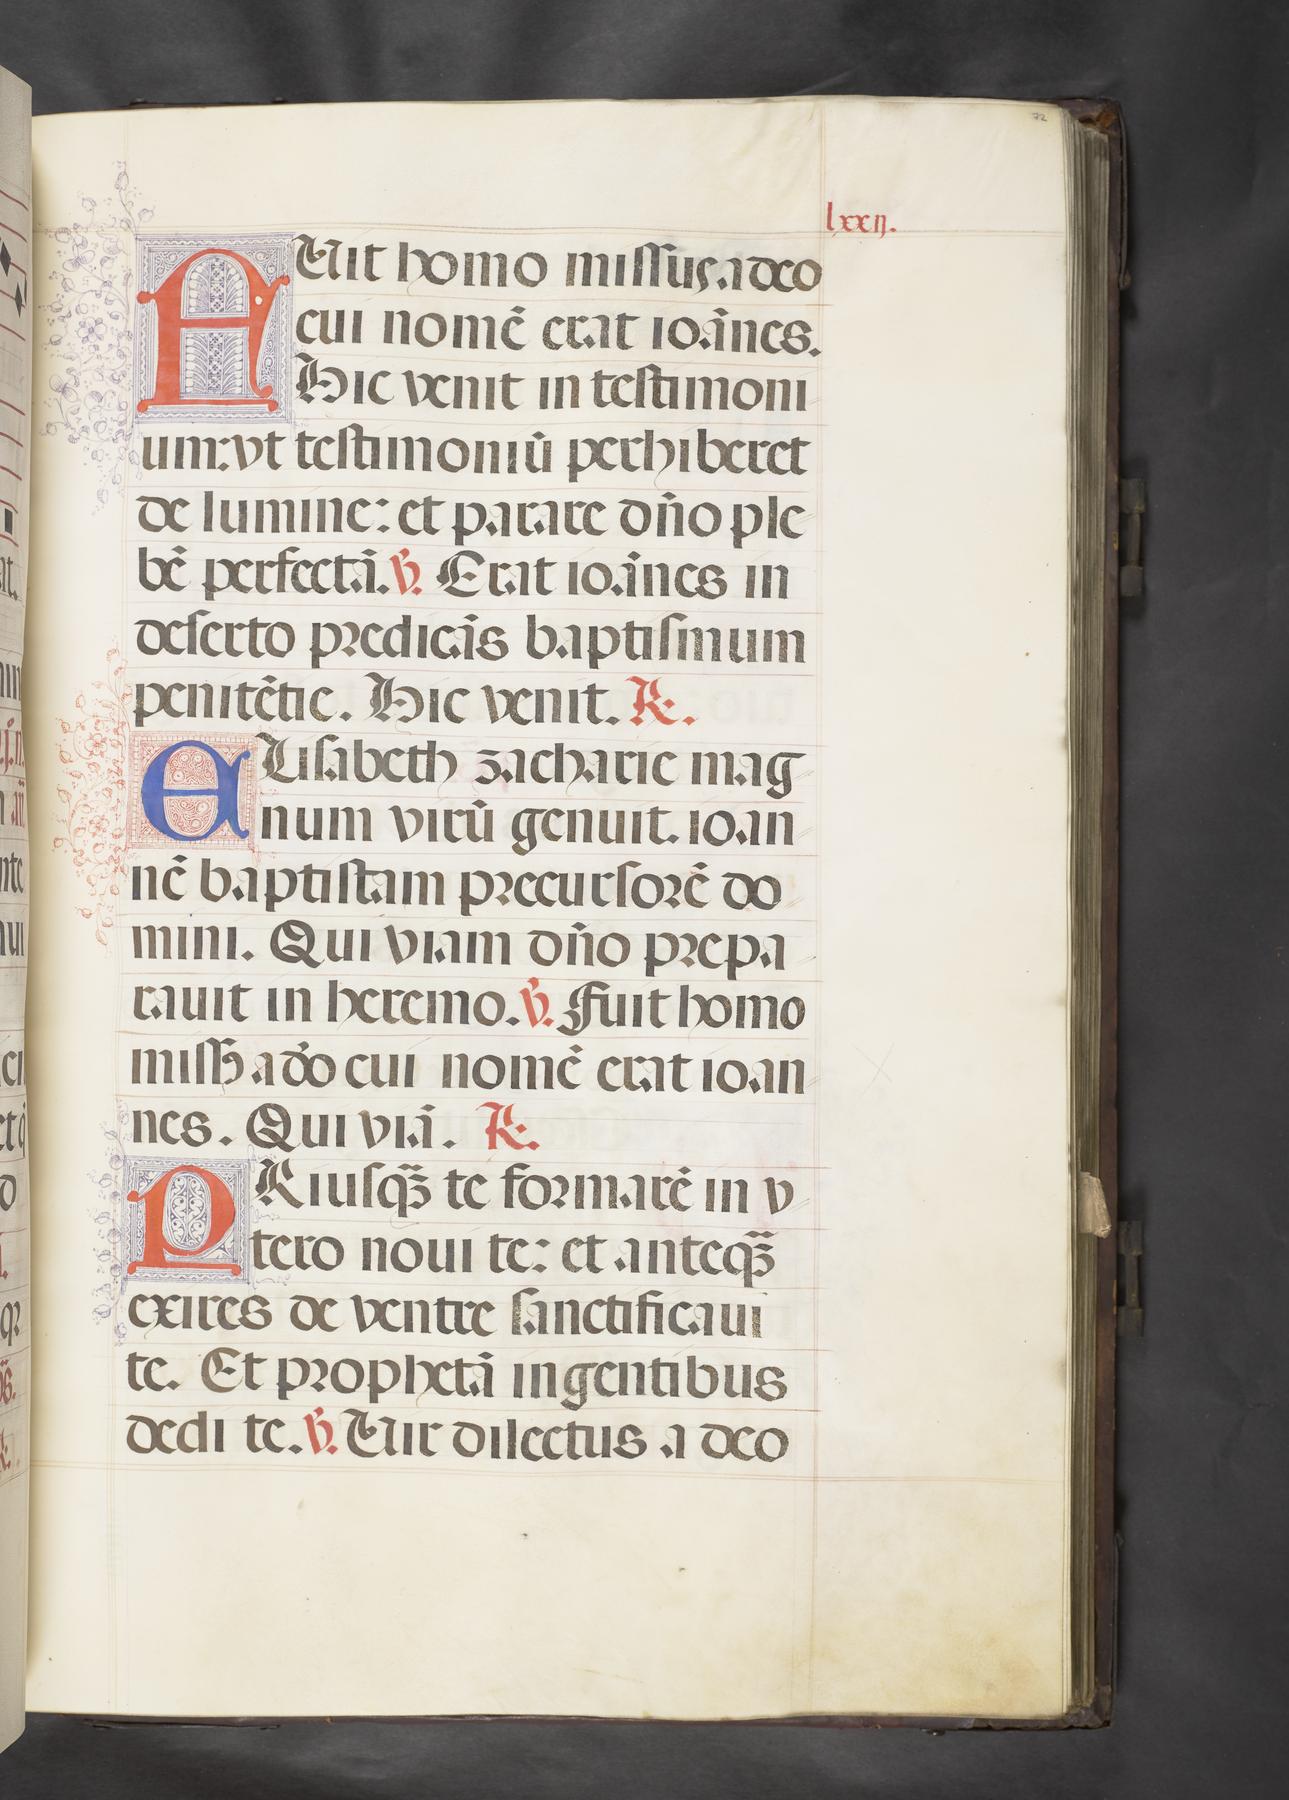 72
lxxij.
FUit homo missus a deo
cui nomē erat ioānes.
Hic venit in testimoni
um: vt testimoniū perhiberet
de lumine: et parare dño ple
bē perfectā. ℣. Erat ioānes in
deserto predicās baptismum
penitētie. Hic venit. ℟.
ELisabeth zacharie mag
num virū genuit. ioan
nē baptistam precursorē do
mini. Qui viam dño prepa
rauit in heremo. ℣. Fuit homo
missꝰ a deo cui nomē erat ioan
nes. Qui viā. ℟.
PRiusqꝫ te formarē in v
tero noui te: et anteqꝫ
exires de ventre sanctificaui
te. Et prophetā in gentibus
dedi te. ℣. Uir dilectus a deo